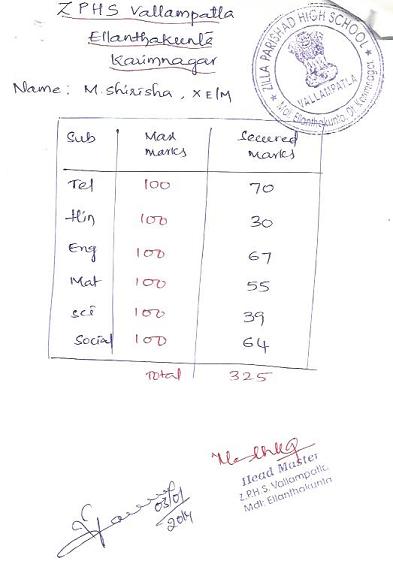 Z PHS Vallampatla
Ellanthakunta
Karimnagar
ZILLA PARISHAD HIGH SCHOOL
VALLAMPATLA
Mdl: Ellanthakunta, Dt. Karimnagar.
Name: M. Shirisha, X E/M
Sub Max marks Secured marks
Tel 100 70
Hin 100 30
Eng 100 67
Mat 100 55
sci 100 39
Social 100 64
Total 325
03/01
2014
Head Master
Z.P.H.S. Vallampatla
Mdl: Ellanthakunta